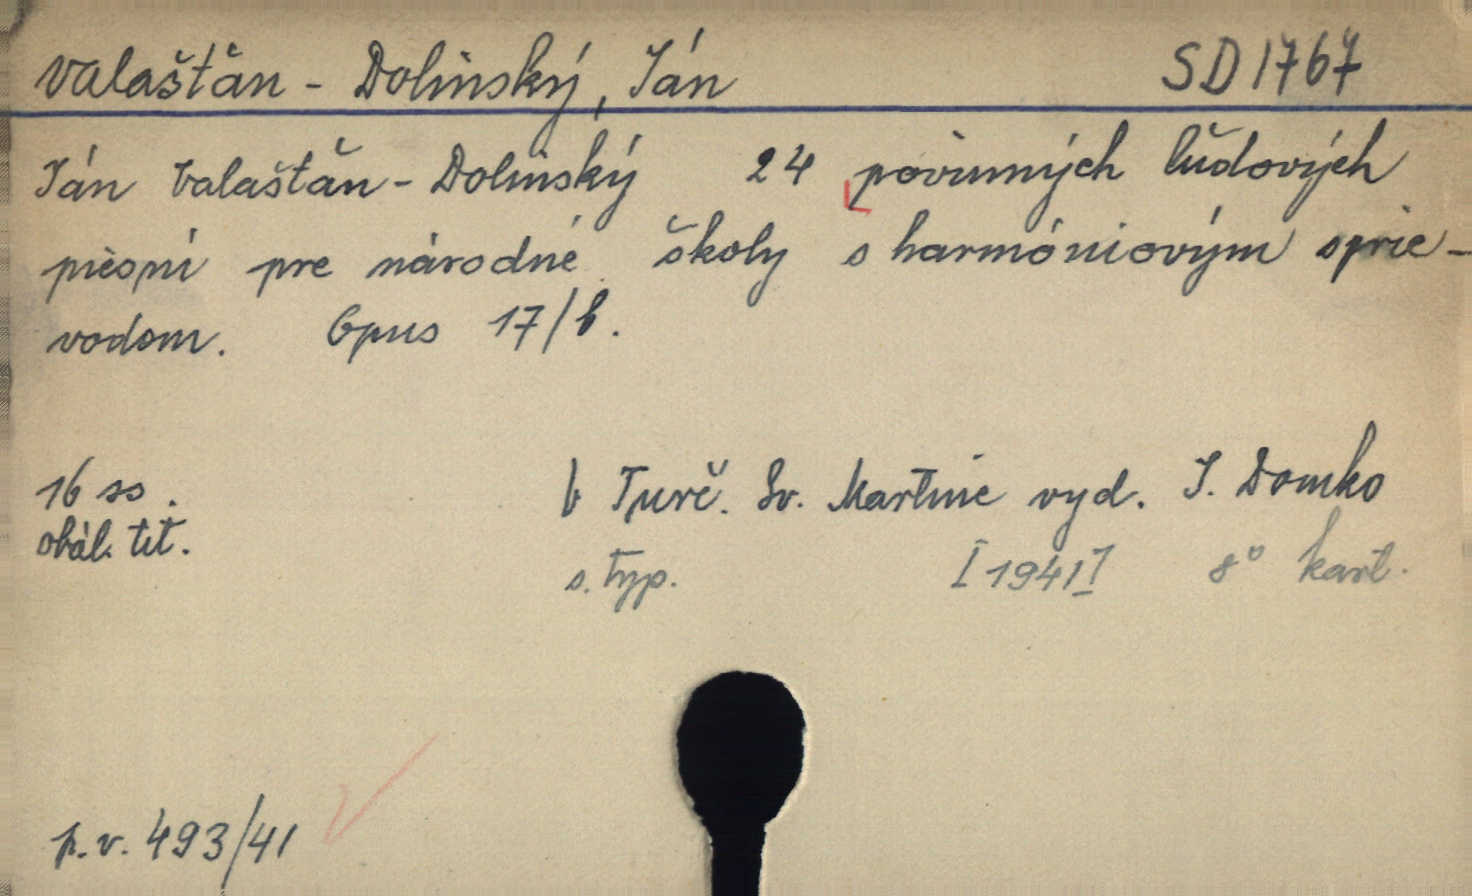 Valašťan - Dolinský, Ján SD 1767
Ján Valašťan - Dolinský 24 povinných ľudových
piesní pre národné školy s harmóniovým sprie-
vodom. Opus 17/b.
16 ss.
obál. tit.
V Turč. Sv. Martine vyd. J. Domko
s. typ. [1941] 8° kart.
p. v. 493/41